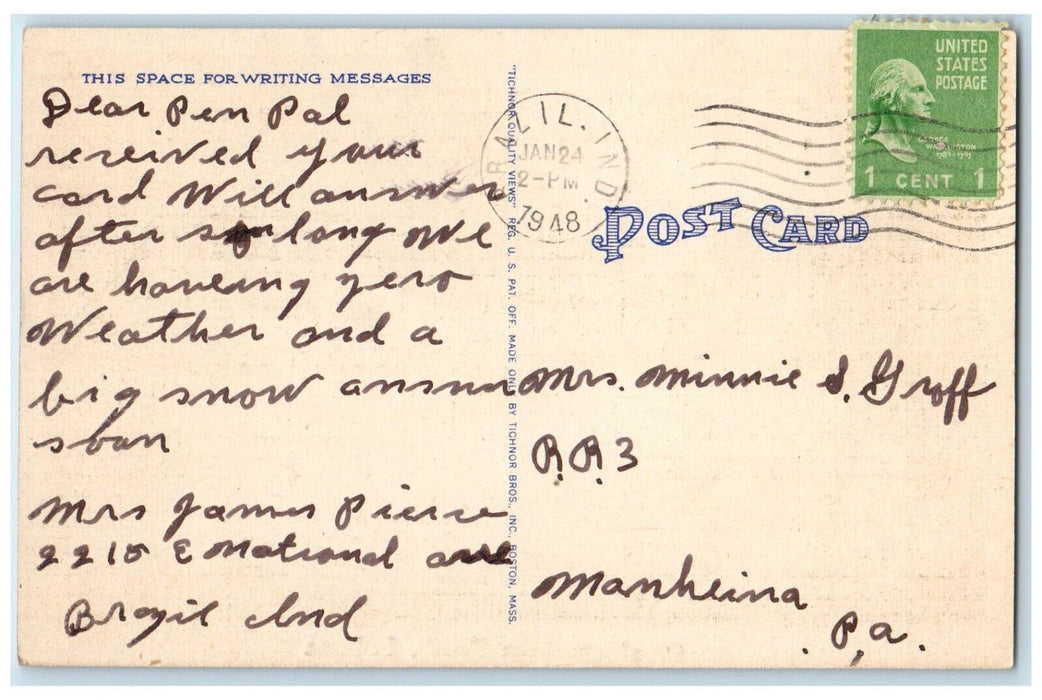 THIS SPACE FOR WRITING MESSAGES
Dear Pen Pal
received your
card Will answer
after so long We
are haveing zero
Weather and a
big snow answer
soon
Mrs James Pierce
2215 E National ave
Brazil Ind
"TICHNOR QUALITY VIEWS" REG. U. S. PAT. OFF. MADE ONLY BY TICHNOR BROS., INC., BOSTON, MASS.
BRAZIL. IND.
JAN 24
2-PM
1948
UNITED
STATES
POSTAGE
GEORGE
WASHINGTON
1789-1797
1 CENT 1
POST CARD
Mrs. Minnie S. Groff
R.R.3
Manheim
Pa.